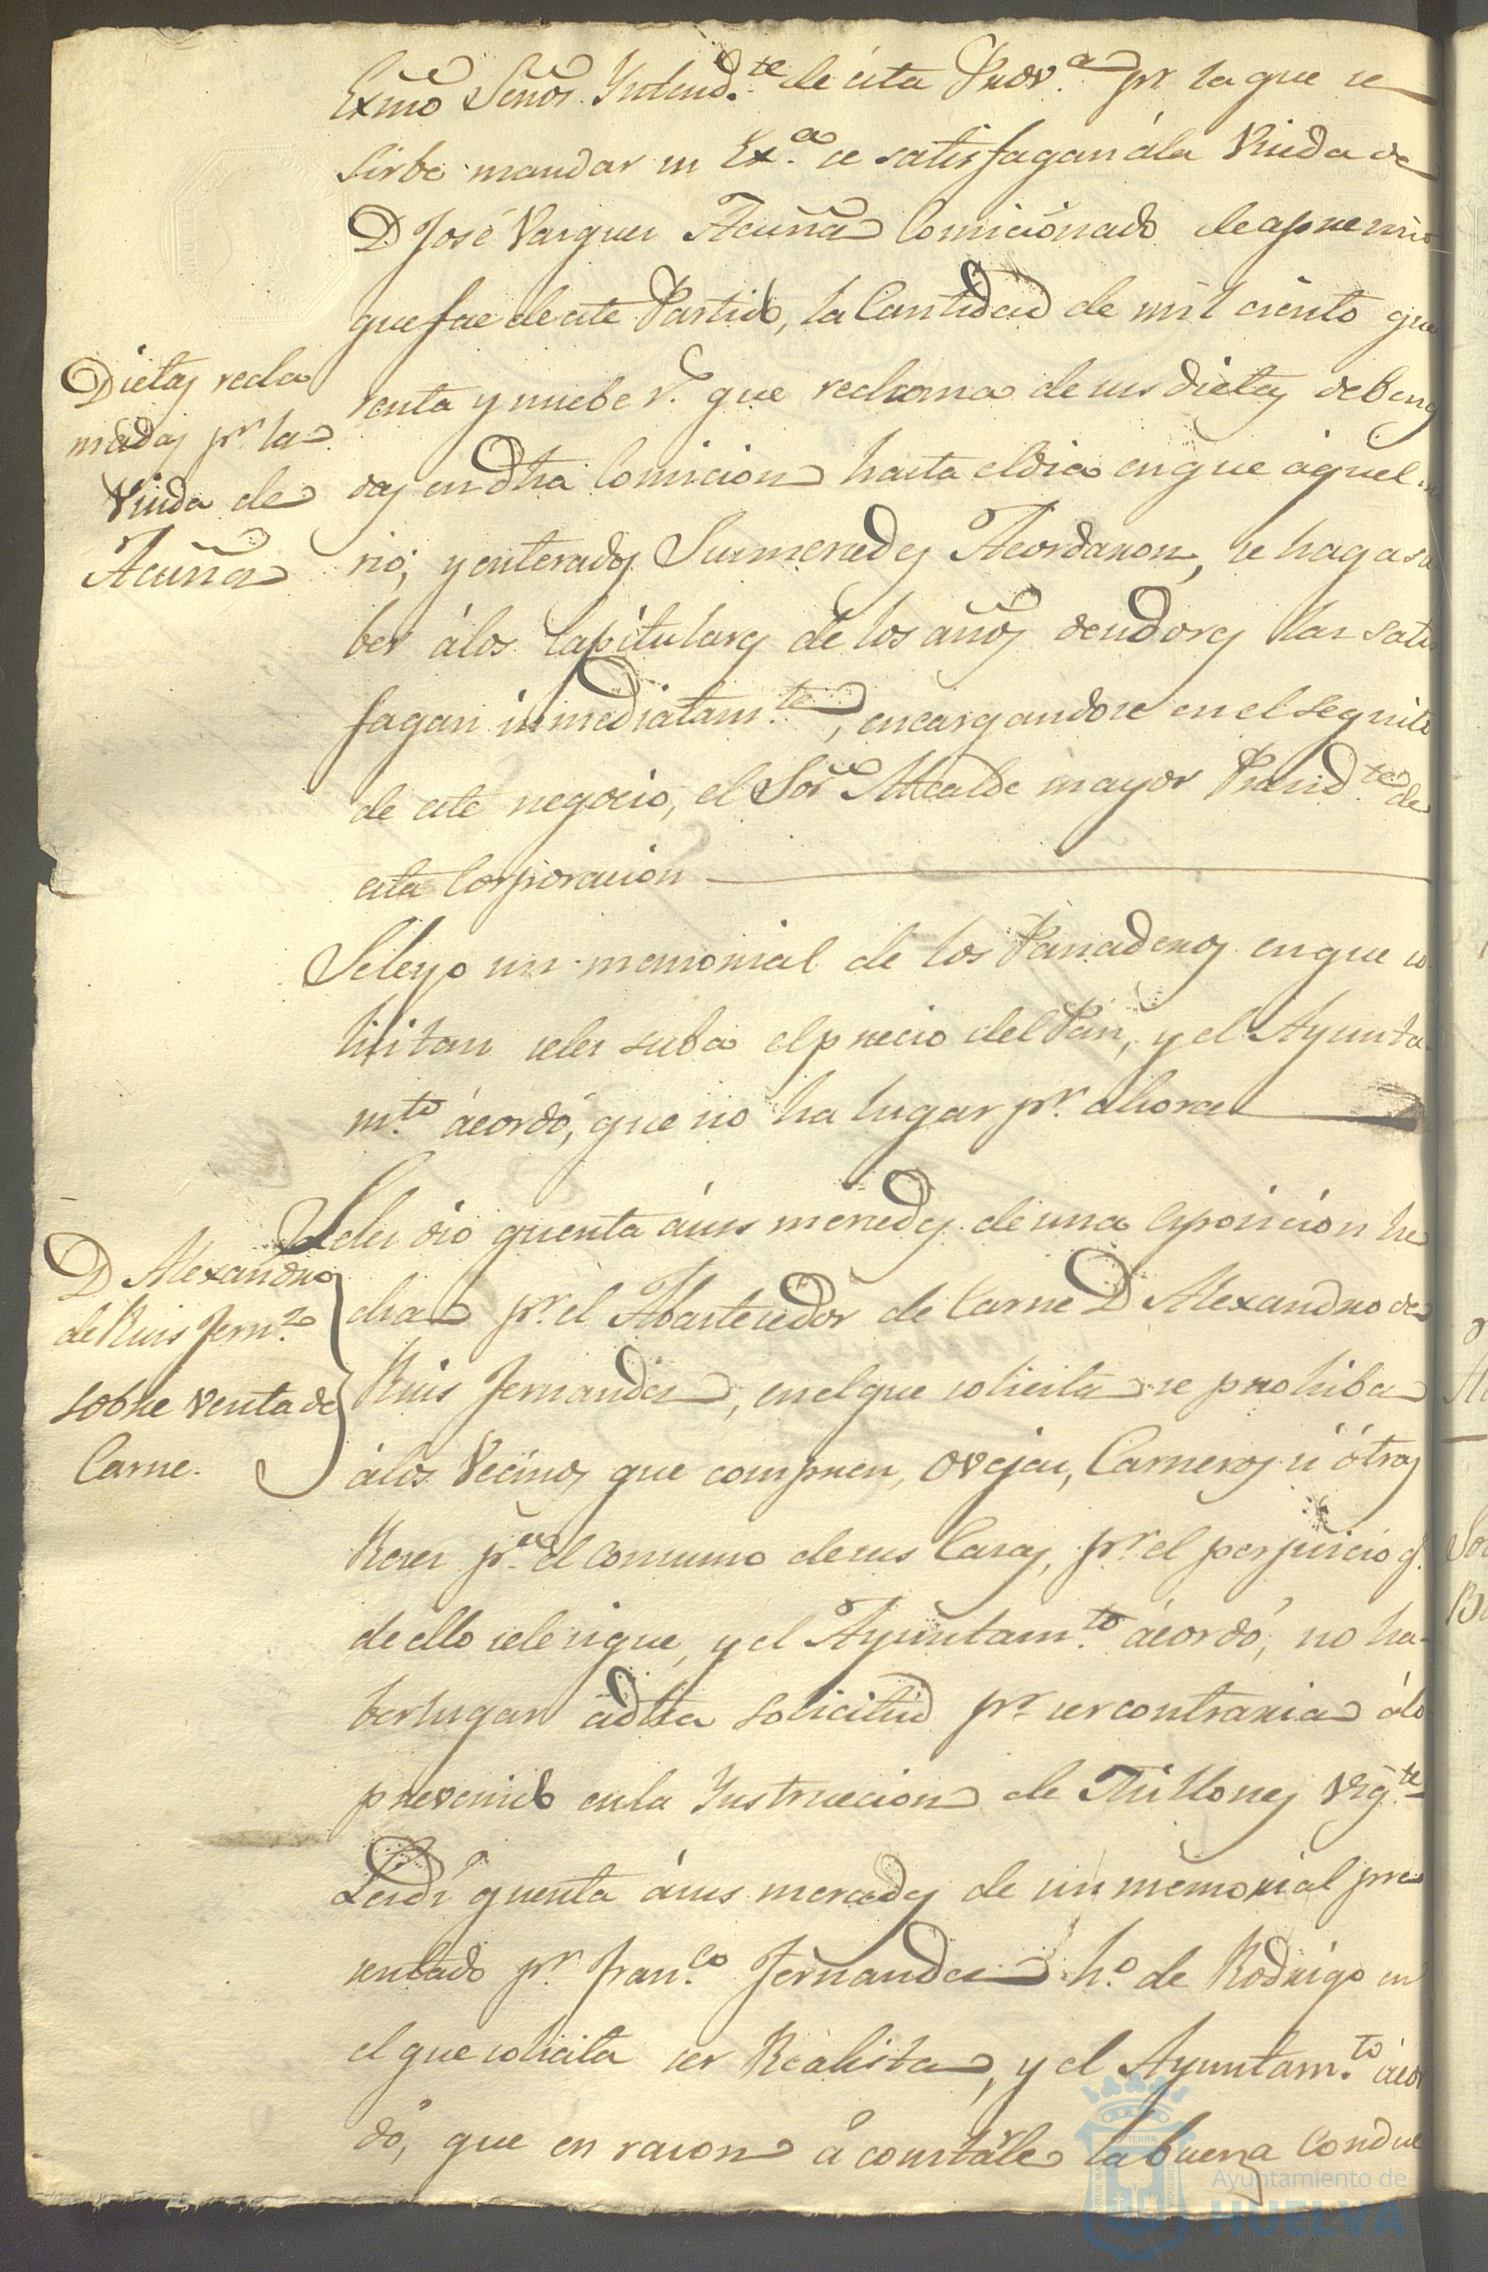 Exmo Señor Yntend.te de esta Prov.a pr la que se
sirbe mandar su Ex.a se satisfagan á la Viuda de
D José Varquez Acuña Comicionado de apremio
que fue de este Partido, la Cantidad de mil ciento qua
Dietas recla
madas pr. la
Viuda de
Acuña
renta y nuebe r.s que reclama de sus dietas debenga
das en dha Comicion hasta el dia en que aquel mu
rio; y enterados Sus mercedes Acordaron, se haga sa
ber á los Capitulares de los años deudores las satis
fagan inmediatam.te, encargandose en el seguito
de este negocio, el Sor Alcalde mayor Presid.te de
esta Corporacion
Se leyo un memorial de los Panaderos en que so
licitan seles suba el precio del Pan, y el Ayunta
m.to ácordó, que no ha lugar pr. ahora
Seles dio quenta á sus mercedes de una esposicion he
D Alexandro
de Ruis Fern.z
sobre Venta de
Carne.
cha pr. el Abastecedor de Carne D Alexandro de
Ruis Fernandez, en el que solicita se prohiba
á los Vecinos que compren, Ovejas, Carneros ú ótras
Reses pr.a el consumo de sus Casas, pr. el perjuicio q.
de ello sele sigue, y el Ayuntam.to ácordó, no ha-
ber lugar á dha solicitud pr. ser contraria á lo
prevenido en la Ynstruccion de Millones Vig.te
Les dí quenta á sus mercedes de un memorial pre
sentado pr. Fran.co Fernandez h.o de Rodrigo en
el que solicita ser Realista, y el Ayuntam.to ácor
dó, que en racon á constarle la buena Conduc
Ayuntamiento de
HUELVA